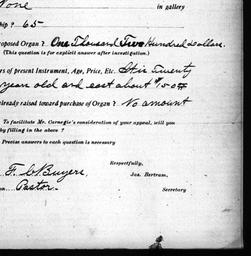 None in gallery
ship? 65
oposed Organ? One Thousand Two Hundred dollars.
(This question is for explicit answer after investigation.)
rs of present Instrument, Age, Price, Etc. It is Twenty
year old and cost about
already raised toward purchase of Organ? No amount
To facilitate Mr. Carnegie's consideration of your appeal, will you
by filling in the above?
Precise answers to each question is necessary
Respectfully,
F. C. Buyers Jas. Bertram,
on Pastor. Secretary